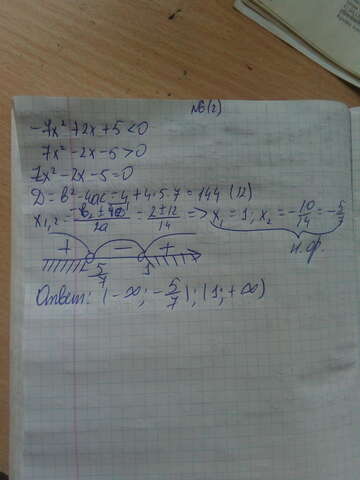 №6(2)
-7x² + 2x + 5 < 0
7x² - 2x - 5 > 0
7x² - 2x - 5 = 0
D = b² - 4ac = 4 + 4·5·7 = 144 (12)
x₁,₂ = = 2 ± 12 / 14 => x₁ = 1; x₂ = -10/14 = -5/7
+ - +
5/7 1 и.ф.
Ответ: (-∞; -5/7); (1; +∞)